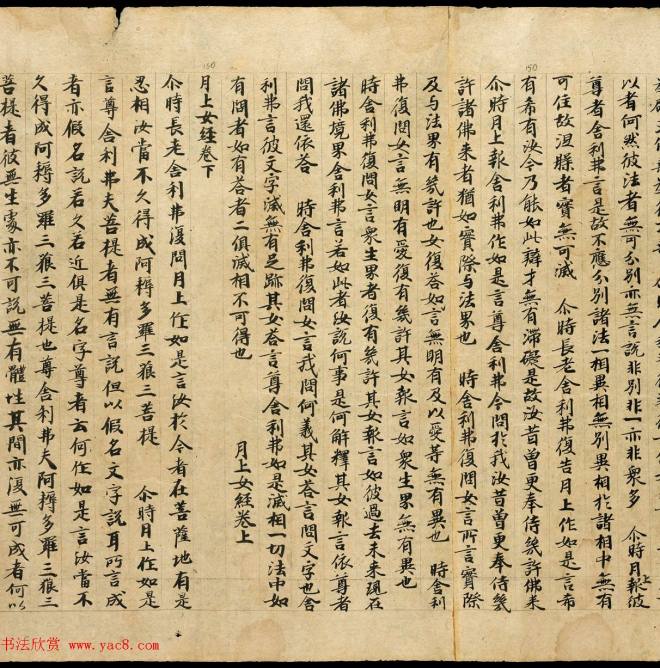 以者何然彼法者無可分別亦無言說非別非一亦非衆多 尒時月上報彼
尊者舍利弗言是故不應分別諸法一相異相無別異相於諸相中無有
可住故涅槃者實無可滅 尒時長老舍利弗復告月上作如是言希
有希有汝今乃能如此辯才無有滯礙是故汝昔曾更奉侍幾許佛来
尒時月上報舍利弗作如是言尊舍利弗今問於我汝昔曾更奉侍幾
許諸佛来者猶如實際与法界也 時舍利弗復問女言所言實際
及与法界有幾許也女復荅如言無明有及以愛等無有異也 時舍利
弗復問女言無明有愛復有幾許其女報言如衆生界無有異也
時舍利弗復問女言衆生界者復有幾許其女報言如彼過去未来現在
諸佛境界舍利弗言若如此者汝說何事是何解釋其女報言依尊者
問我還依荅 時舍利弗復問女言我問何義其女荅言問文字也舍
利弗言彼文字滅無有足跡其女荅言尊舍利弗如是滅相一切法中如
有問者如有荅者二俱滅相不可得也 月上女經卷上
月上女經卷下
尒時長老舍利弗復問月上作如是言汝於今者在菩薩地有是
忍相汝當不久得成阿耨多羅三藐三菩提 尒時月上作如是
言尊舍利弗夫菩提者無有言說但以假名文字說耳所言成
者亦假名說若久若近俱是名字尊者云何作如是言汝當不
久得成阿耨多羅三藐三菩提也尊舍利弗夫阿耨多羅三藐三
菩提者彼無生處亦不可說無有體性其間亦復無可成者何以
150
150
书法欣赏 www.yac8.com